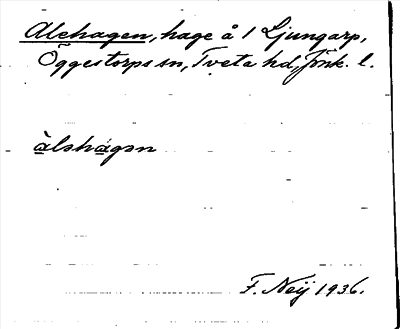 Alehagen, hage å 1 Ljungarp,
Öggestorps sn, Tveta hd, Jönk. l.
àlshágən
F. Neij 1936.